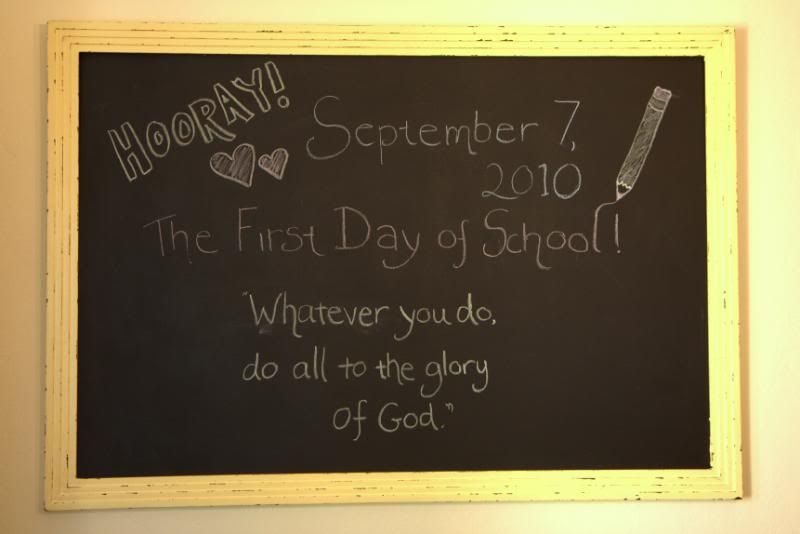 HOORAY!
September 7,
2010
The First Day of School!
"Whatever you do,
do all to the glory
of God."